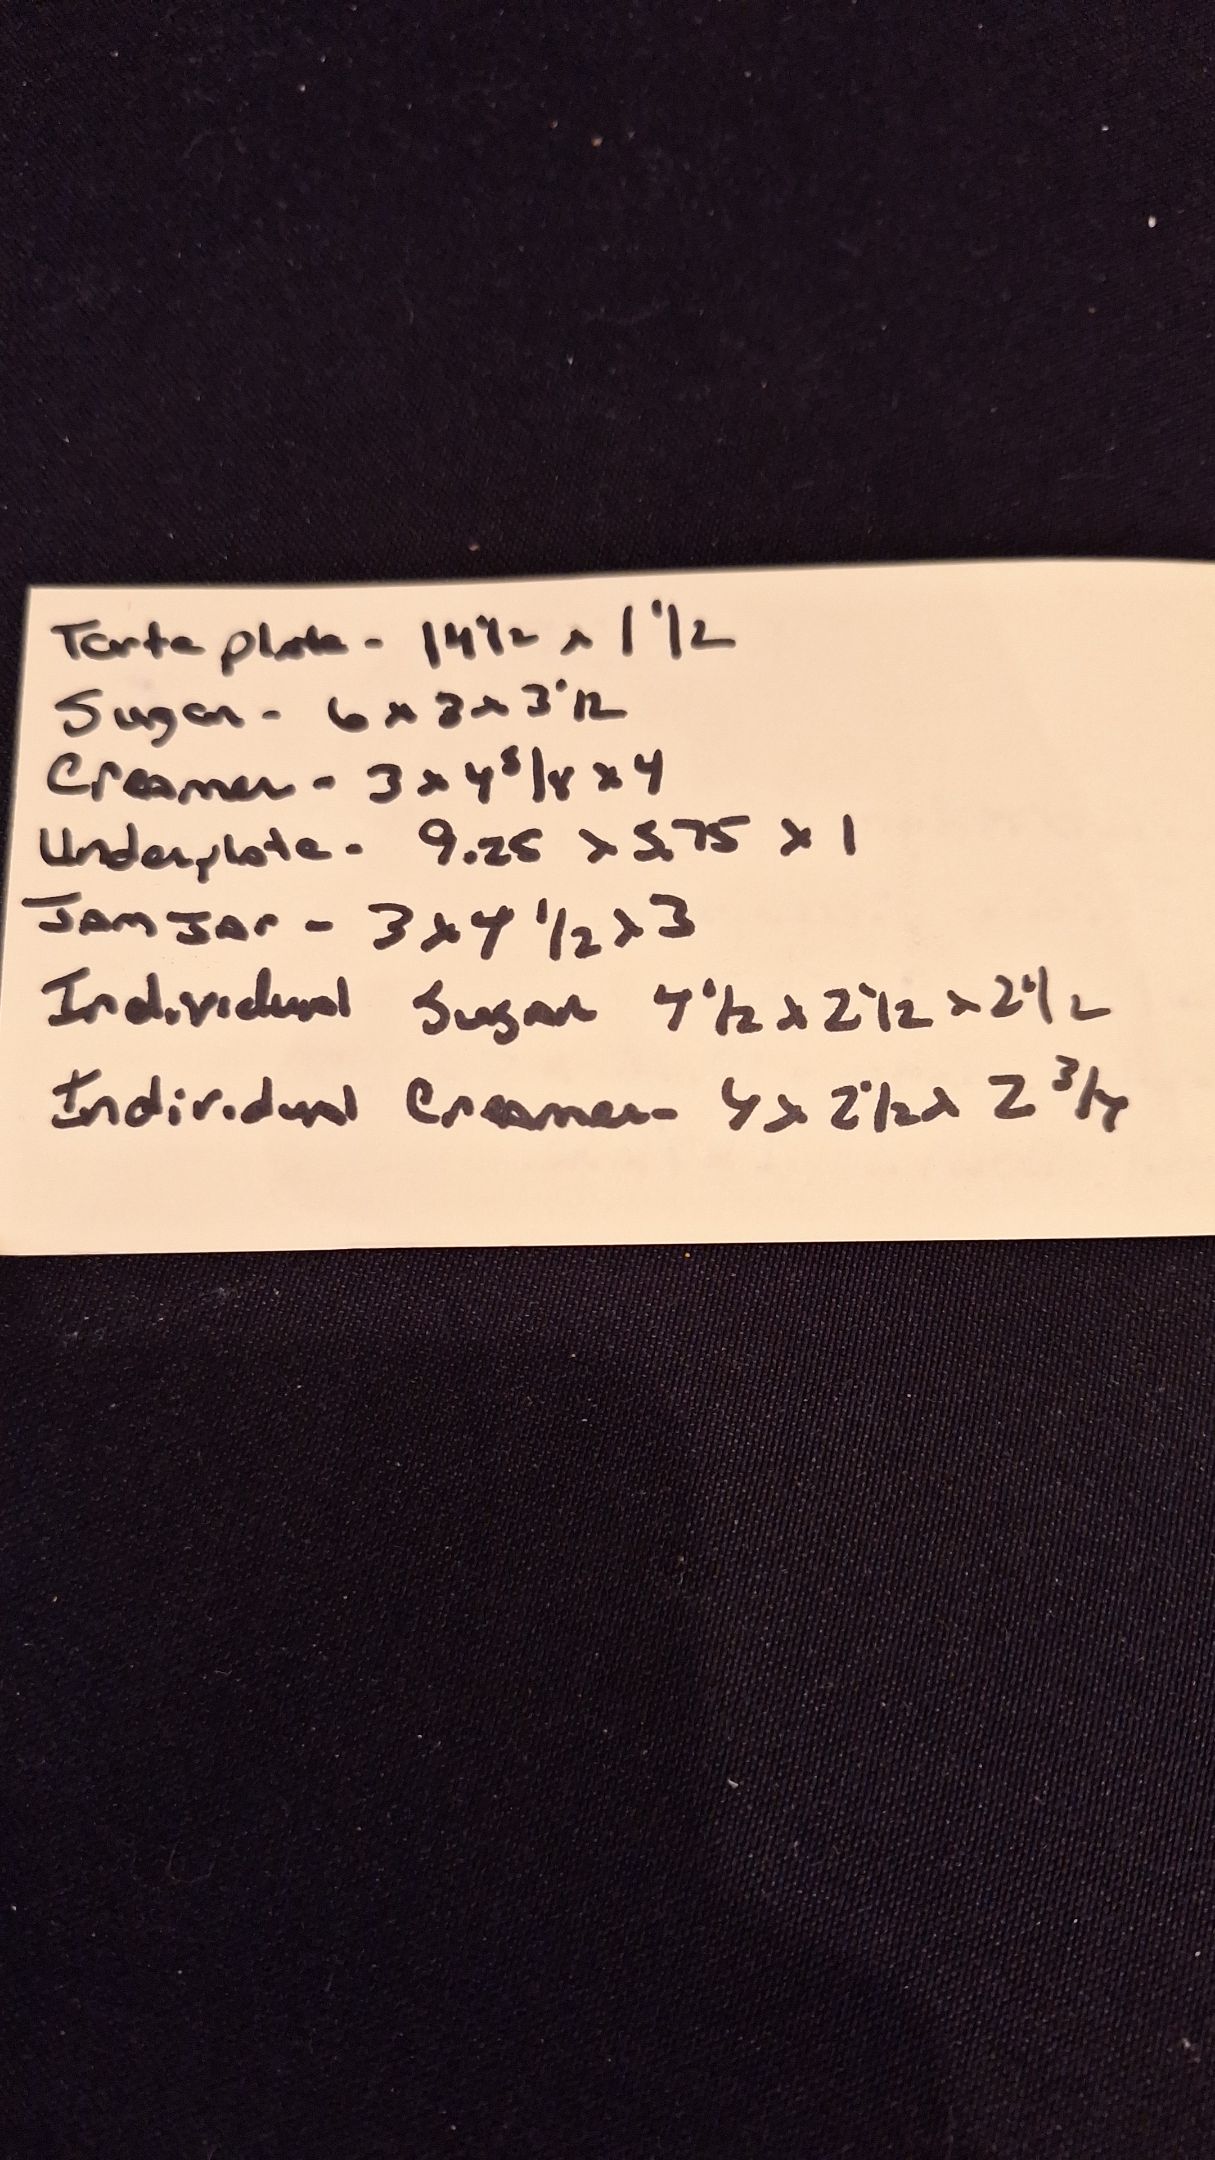 Torte plate - 14 1/2 x 1 1/2
Sugar - 6 x 3 x 3 1/2
Creamer - 3 x 4 5/8 x 4
Underplate - 9.25 x 5.75 x 1
Jam Jar - 3 x 4 1/2 x 3
Individual Sugar 4 1/2 x 2 1/2 x 2 1/2
Individual Creamer - 4 x 2 1/2 x 2 3/4